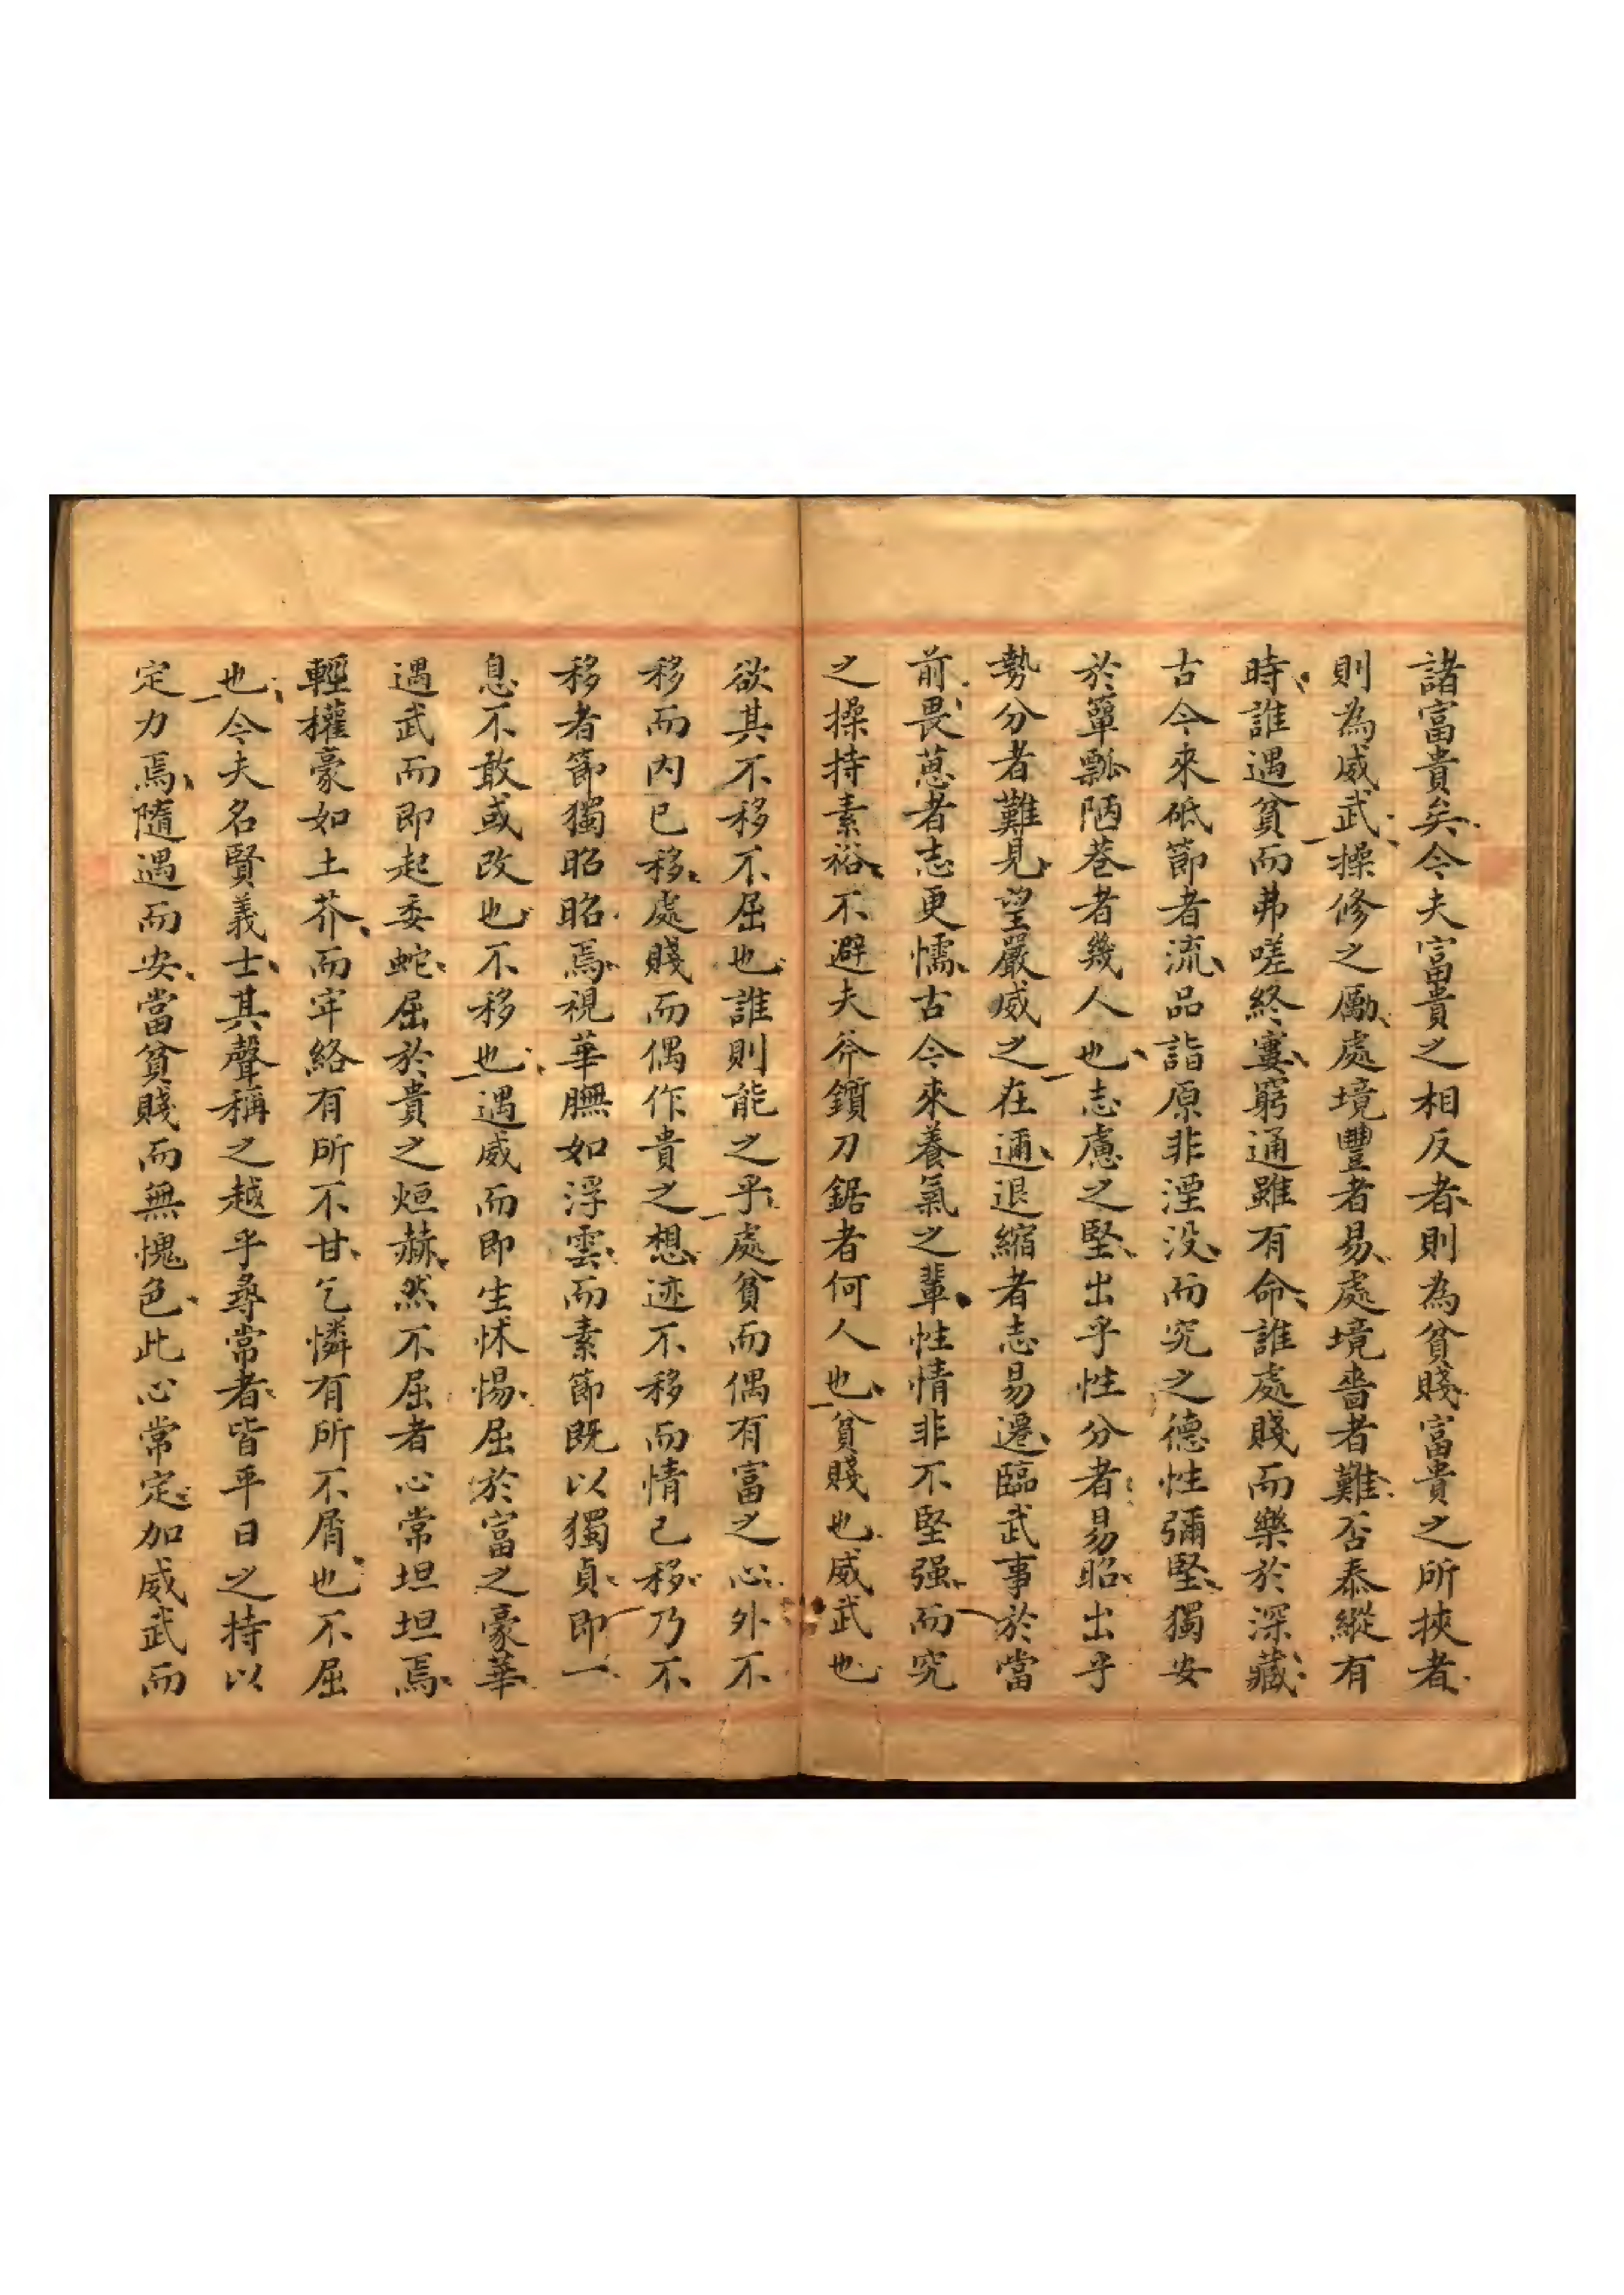 諸富貴矣今夫富貴之相反者則為貧賤富貴之所挾者
則為威武操修之勵處境豐者易處境嗇者難否泰縱有
時誰遇貧而弗嗟終窶窮通雖有命誰處賤而樂於深藏
古今來砥節者流品詣原非湮没而究之德性彌堅獨安
於簞瓢陋巷者幾人也志慮之堅出乎性分者易昭出乎
勢分者難見望嚴威之在邇退縮者志易遷臨武事於當
前畏葸者志更懦古今來養氣之輩性情非不堅强而究
之操持素裕不避夫斧鑕刀鋸者何人也貧賤也威武也
欲其不移不屈也誰則能之乎處貧而偶有富之心外不
移而内已移處賤而偶作貴之想迹不移而情已移乃不
移者節獨昭昭焉視華膴如浮雲而素節既以獨貞即一
息不敢或改也不移也遇威而即生怵惕屈於富之豪華
遇武而即起委蛇屈於貴之烜赫然不屈者心常坦坦焉
輕權豪如土芥而牢絡有所不甘乞憐有所不屑也不屈
也今夫名賢義士其聲稱之越乎尋常者皆平日之持以
定力焉隨遇而安當貧賤而無愧色此心常定加威武而